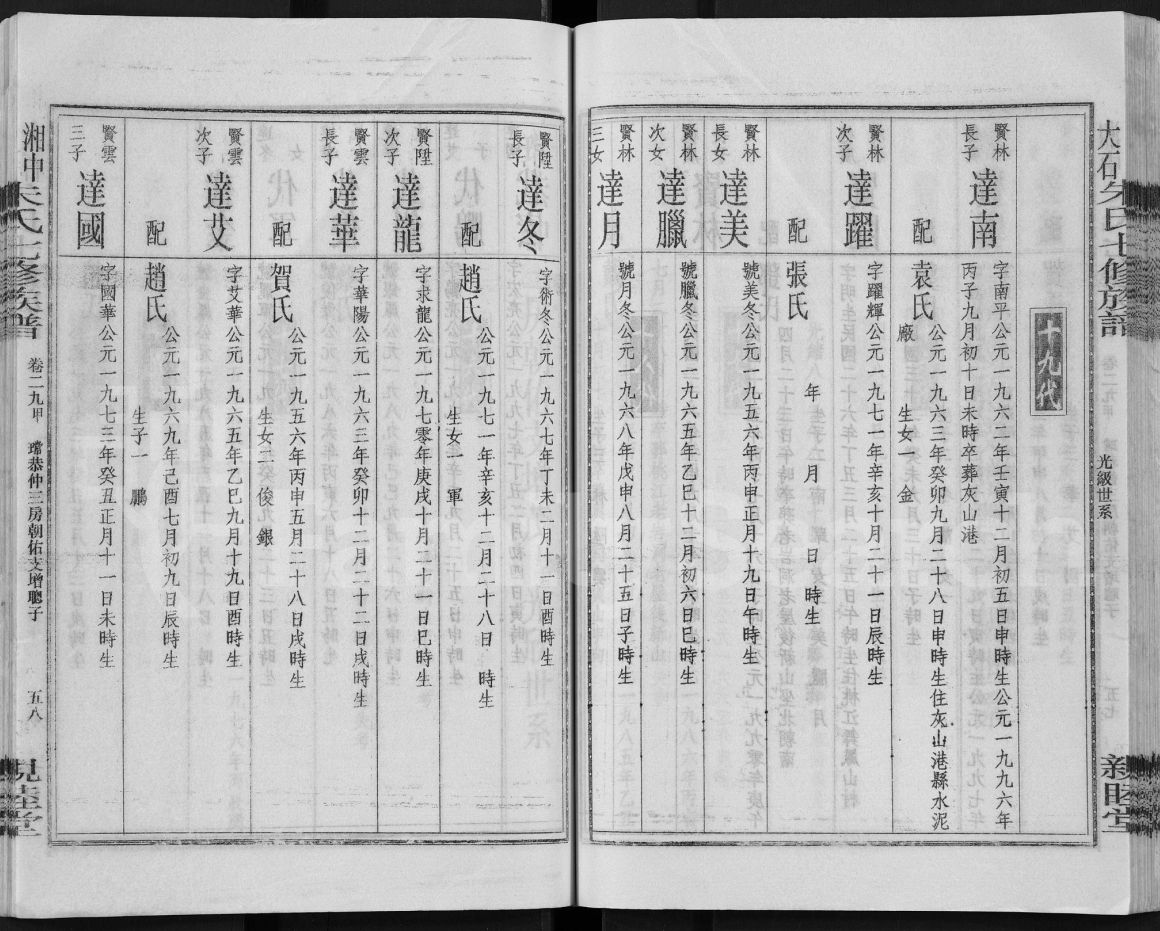 十九代
賢林
長子
達南
字南平公元一九六二年壬寅十二月初五日申時生公元一九九六年
丙子九月初十日未時卒葬灰山港
配
袁氏
公元一九六三年癸卯九月二十八日申時生住灰山港縣水泥
廠　生女一　金
賢林
次子
達躍
字躍輝公元一九七一年辛亥十月二十一日辰時生
配
張氏
年　月　日　時生
賢林
長女
達美
號美冬公元一九五六年丙申正月十九日午時生
賢林
次女
達臘
號臘冬公元一九六五年乙巳十二月初六日巳時生
賢林
三女
達月
號月冬公元一九六八年戊申八月二十五日子時生
光級世系
賢陞
長子
達冬
字術冬公元一九六七年丁未二月十一日酉時生
配
趙氏
公元一九七一年辛亥十二月二十八日　時生
生女一　軍
賢陞
次子
達龍
字求龍公元一九七零年庚戌十月二十一日巳時生
賢雲
長子
達華
字華陽公元一九六三年癸卯十二月二十二日戌時生
配
賀氏
公元一九五六年丙申五月二十八日戌時生
生女二　俊　銀
賢雲
次子
達艾
字艾華公元一九六五年乙巳九月十九日酉時生
配
趙氏
公元一九六九年己酉七月初九日辰時生
生子一　鵬
賢雲
三子
達國
字國華公元一九七三年癸丑正月十一日未時生
湘中朱氏七修族譜
卷二九甲
瓊恭仲三房朝佑支增聰子
五八